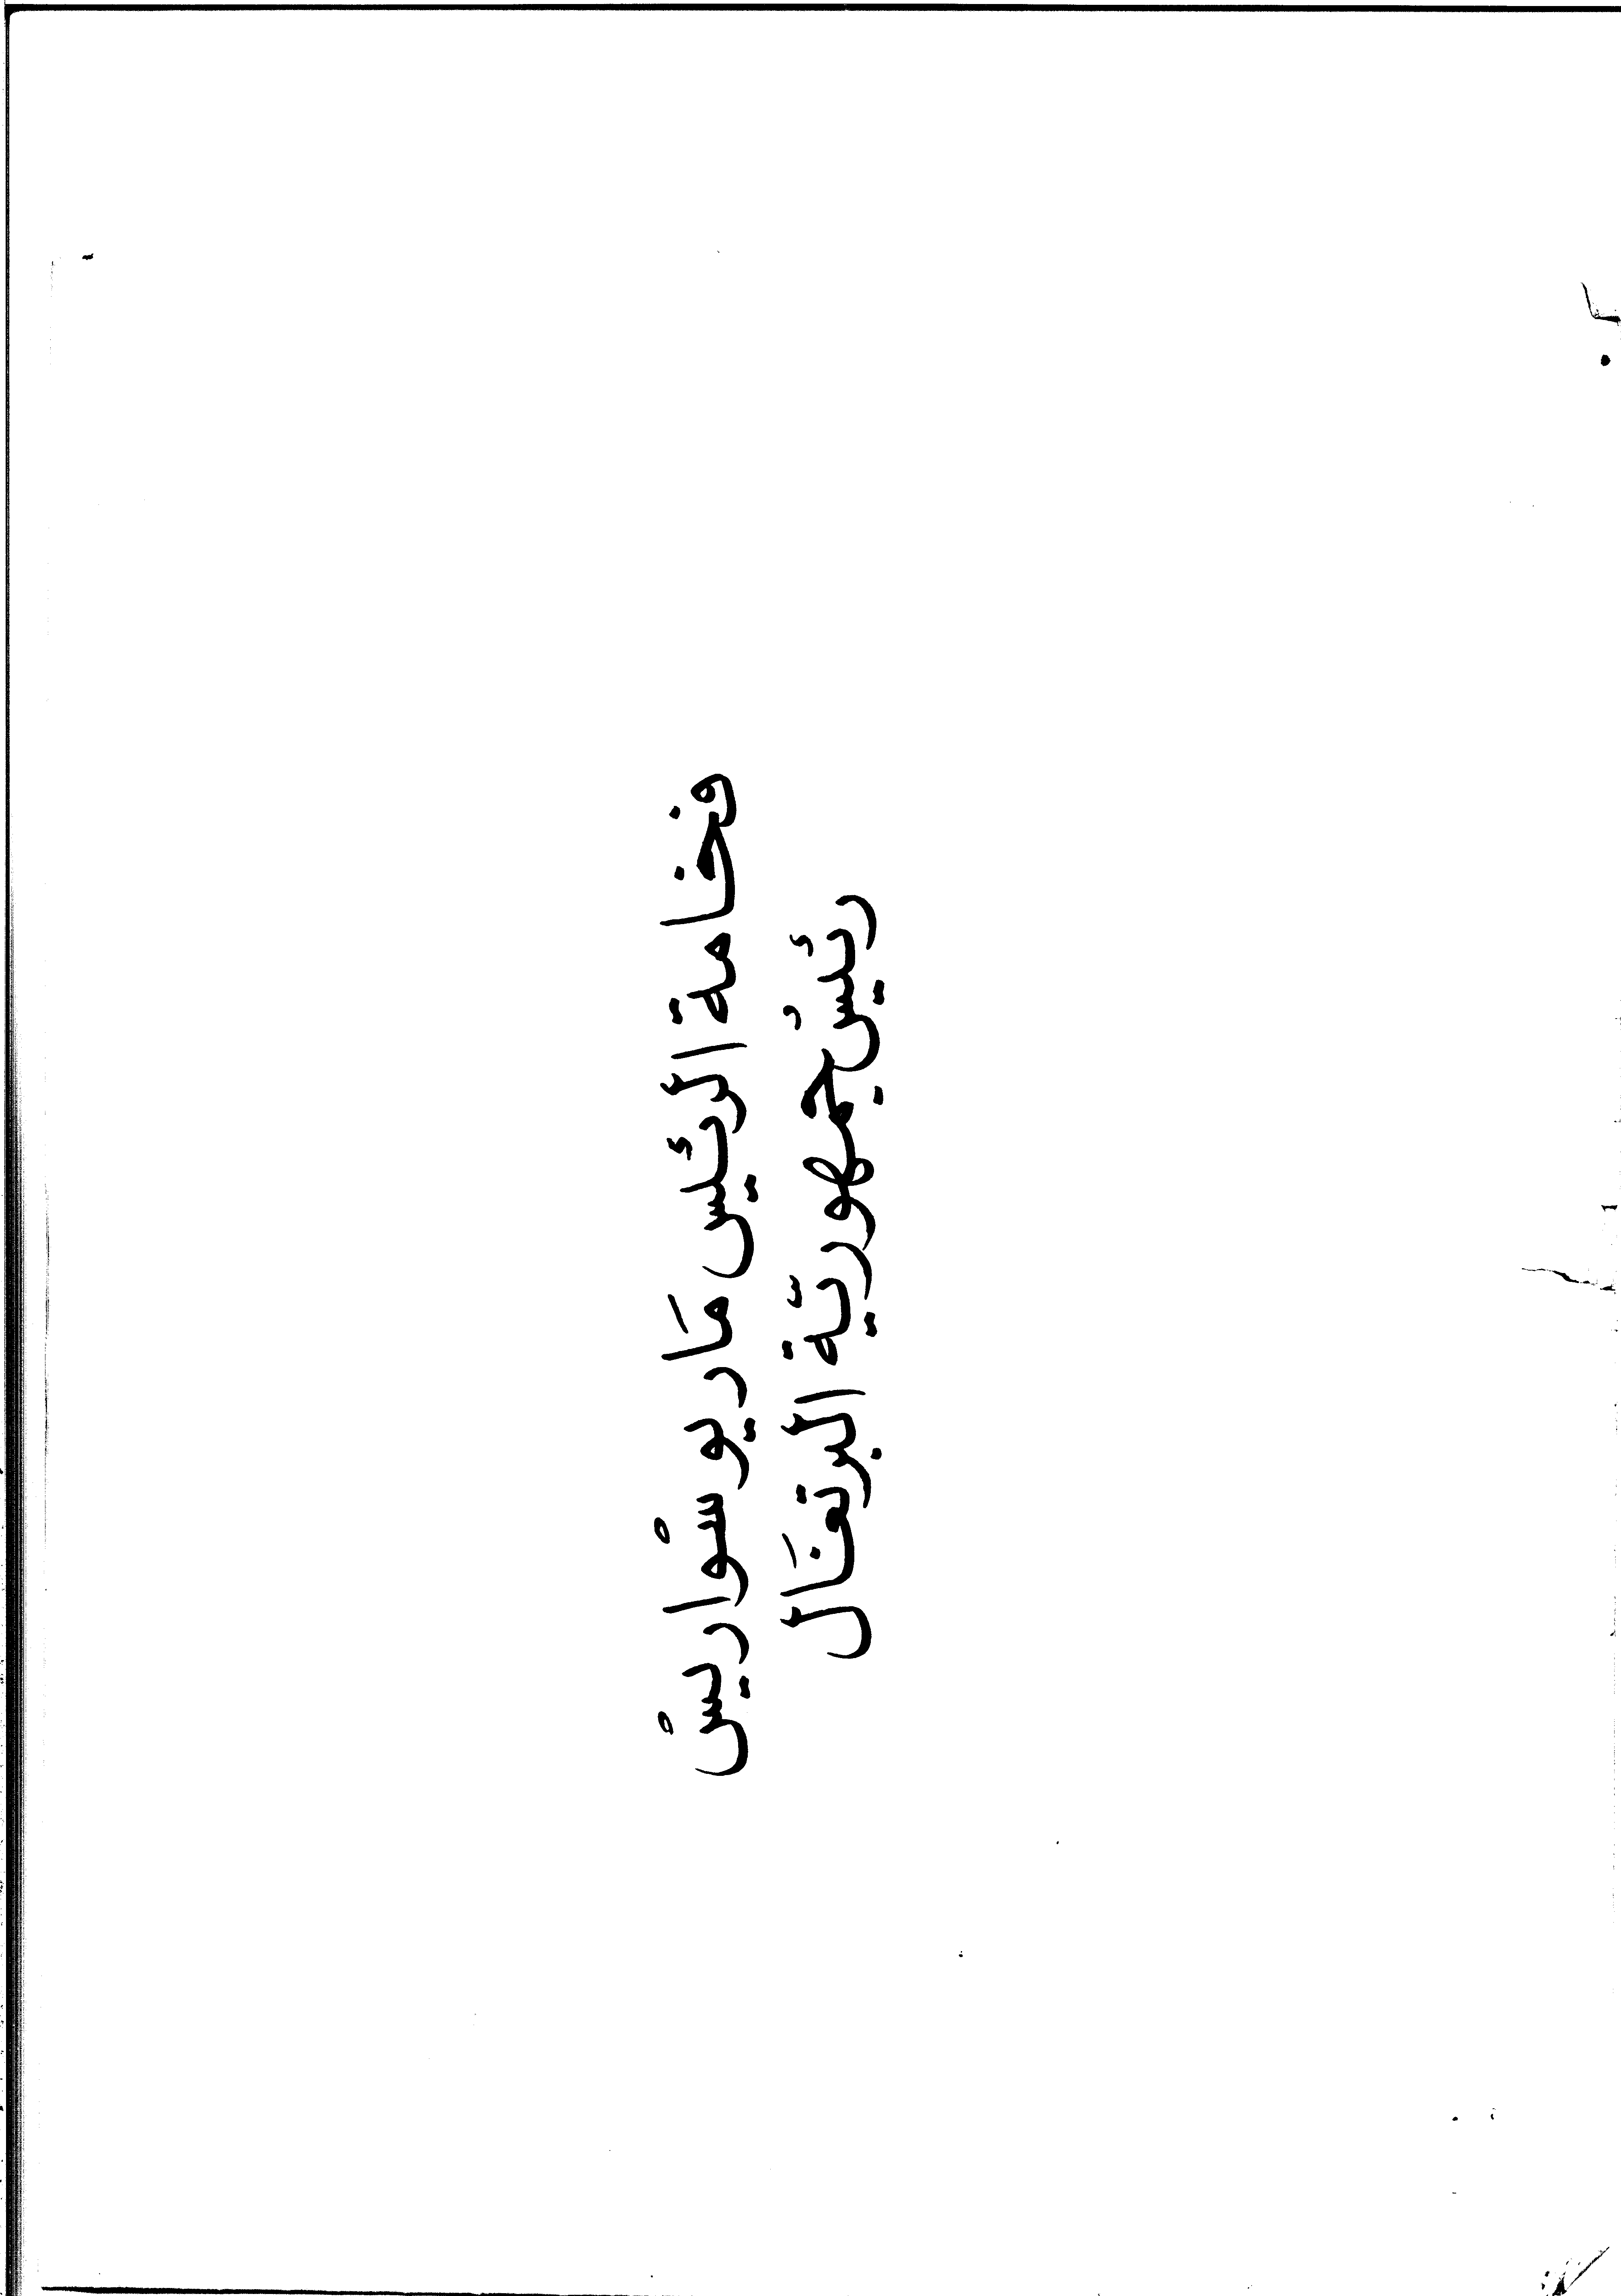 فخامة الرئيس مَاريو سْواريسْ
رئيسُ جمهوريّة البرتغَال